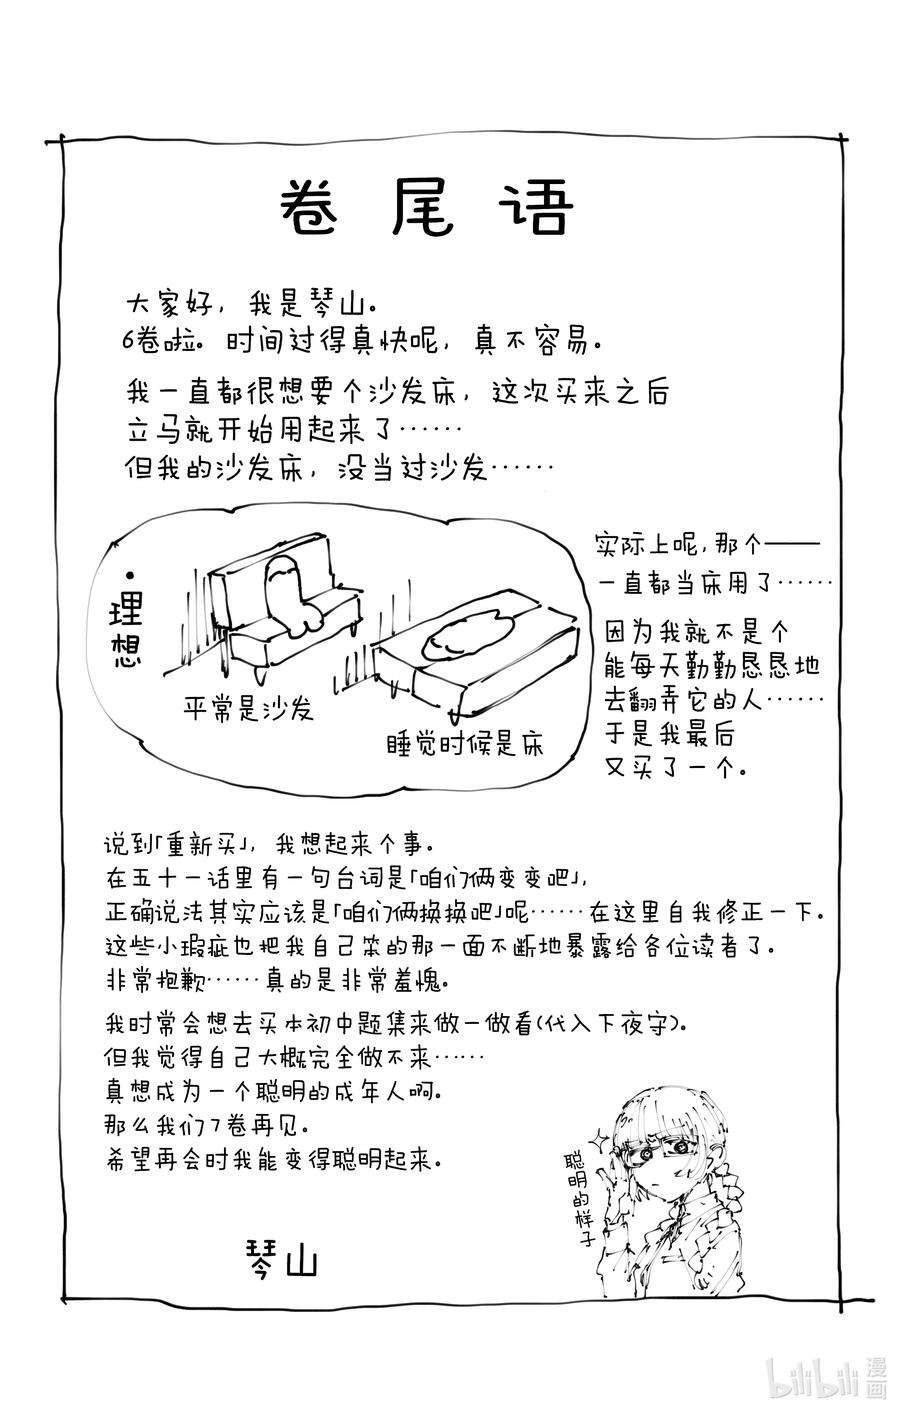 卷尾语
大家好，我是琴山。
6卷啦。时间过得真快呢，真不容易。
我一直都很想要个沙发床，这次买来之后
立马就开始用起来了……
但我的沙发床，没当过沙发……
·理想
平常是沙发
睡觉时候是床
实际上呢，那个——
一直都当床用了……
因为我就不是个
能每天勤勤恳恳地
去翻弄它的人……
于是我最后
又买了一个。
说到「重新买」，我想起来个事。
在五十一话里有一句台词是「咱们俩变变吧」，
正确说法其实应该是「咱们俩换换吧」呢……在这里自我修正一下。
这些小瑕疵也把我自己笨的那一面不断地暴露给各位读者了。
非常抱歉……真的是非常羞愧。
我时常会想去买本初中题集来做一做看(代入下夜守)。
但我觉得自己大概完全做不来……
真想成为一个聪明的成年人啊。
那么我们7卷再见。
希望再会时我能变得聪明起来。
聪明的样子
琴山
bilibili 漫画